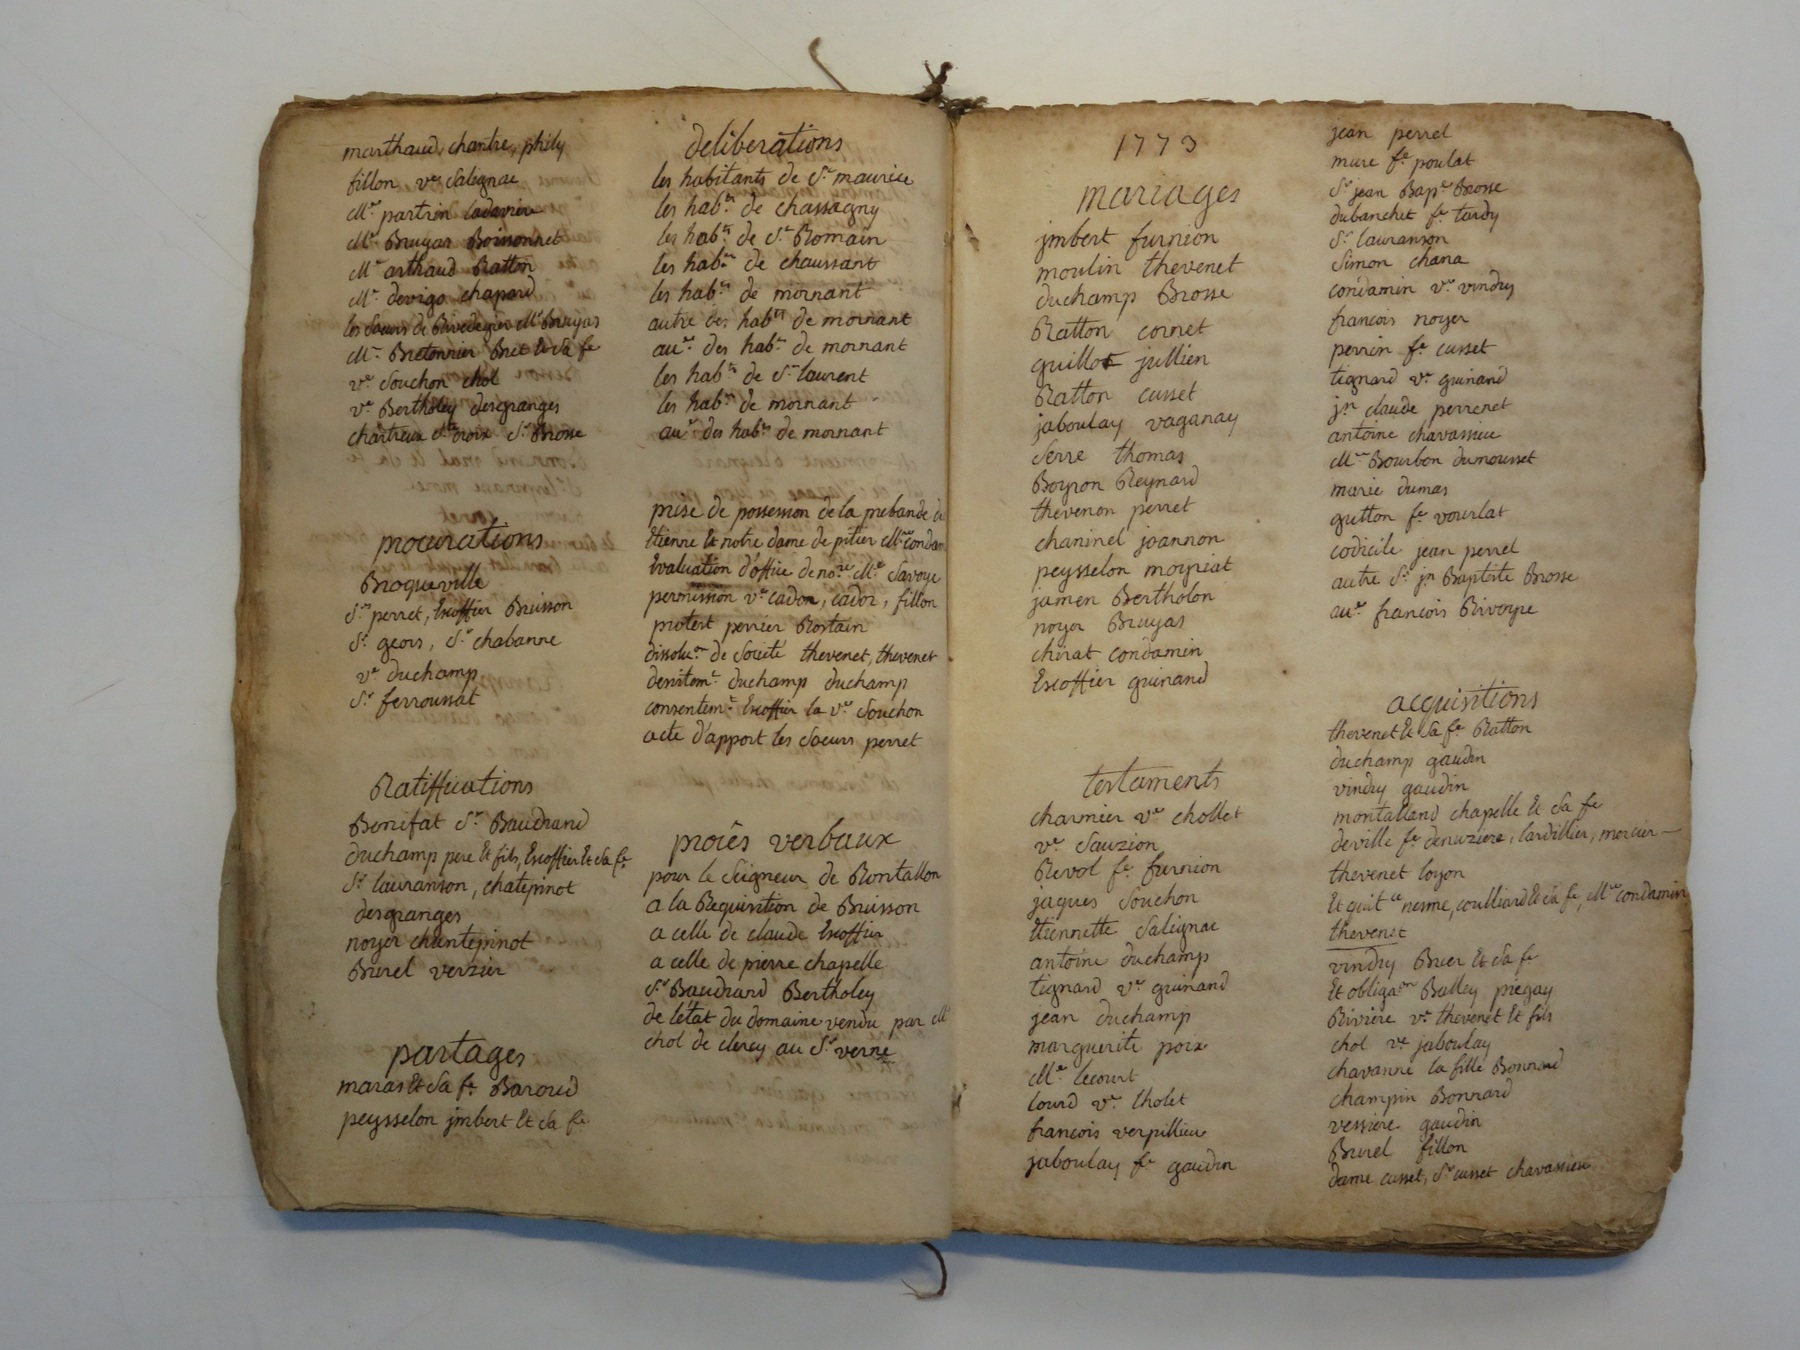 marthaud, chantre, phily
fillon ve Salignac
Mr partrin ladavière
Mr Bruyas Boissonnet
Mr arthaud Ratton
Mr devigo chapard
les Soeurs de Rivedegier Mr Bruyas
Mr Bretonnier Bret Et Sa fe
ve Souchon chol
ve Bertholey desgranges
chartreux Ste croix Sr Brosse
procurations
Broqueville
Sr perret, Escoffier Buisson
Sr geors, Sr chabanne
ve duchamp
Sr ferroussat
Ratiffications
Bonifat Sr Baudrand
duchamp pere Et fils, Escoffier Et Sa fe
Sr lauranson, chatepinot
desgranges
noyer chantepinot
Burel verzier
partages
maras Et Sa fe Baroud
peysselon jmbert Et Sa fe
deliberations
les habitants de St maurice
les habts de chassagny
les habts de St Romain
les habts de chaussant
les habts de mornant
autre des habts de mornant
aue des habts de mornant
les habts de St laurent
les habts de mornant
aue des habts de mornant
prise de possession de la prebande de
Etienne Et notre dame de pitier Mre condam
Evaluation d'office de nore Me Savoye
permission ve cador, cador, fillon
protest perrier Rostain
dissoluon de Societe thevenet, thevenet
desistemt duchamp duchamp
consentemt Escoffier la ve Souchon
acte d'apport les Soeurs perret
procès verbaux
pour le Seigneur de Rontallon
a la Requisition de Buisson
a celle de claude Escoffier
a celle de pierre chapelle
Sr Baudrand Bertholey
de l'etat du domaine vendu par Mr
chol de clercy au Sr verne
1773
mariages
jmbert furnion
moulin thevenet
duchamp Brosse
Ratton cornet
guillot jullien
Ratton cusset
jaboulay vaganay
Serre thomas
Boyron Reynard
thevenon perret
chaninel joannon
peysselon moyriat
jamen Bertholon
noyer Bruyas
chirat condamin
Escoffier guinand
testaments
charmier ve chollet
ve Sauzion
Revol fe furnion
jaques Souchon
Etiennette Salignac
antoine duchamp
tignard ve guinand
jean duchamp
marguerite poix
Me lecourt
lourd ve cholet
francois verpillieu
jaboulay fe gaudin
jean perret
mure fe poulat
Sr jean Bapte Brosse
dubanchet fe tardy
Sr lauranson
Simon chana
condamin ve vindry
francois noyer
perrin fe cusset
tignard ve guinand
jn claude perrenet
antoine chavassieu
Mre Bourbon dumousset
marie dumas
gutton fe vourlat
codicile jean perret
autre Sr jn Baptiste Brosse
aue francois Rivoyre
acquisitions
thevenet Et Sa fe Ratton
duchamp gaudin
vindry gaudin
montalland chapelle Et Sa fe
deville fe denuziere, lardillier, mercier —
thevenet loyon
Et quitce nesme, coulliard Et Sa fe, Mre condamin
thevenet
vindry Bruer Et Sa fe
Et obligaon Balley piegay
Riviere ve thevenet Et fils
chol ve jaboulay
chavanne la fille Bonnard
champin Bonnard
vessiere gaudin
Burel fillon
dame cusset, Sr cusset chavassieu